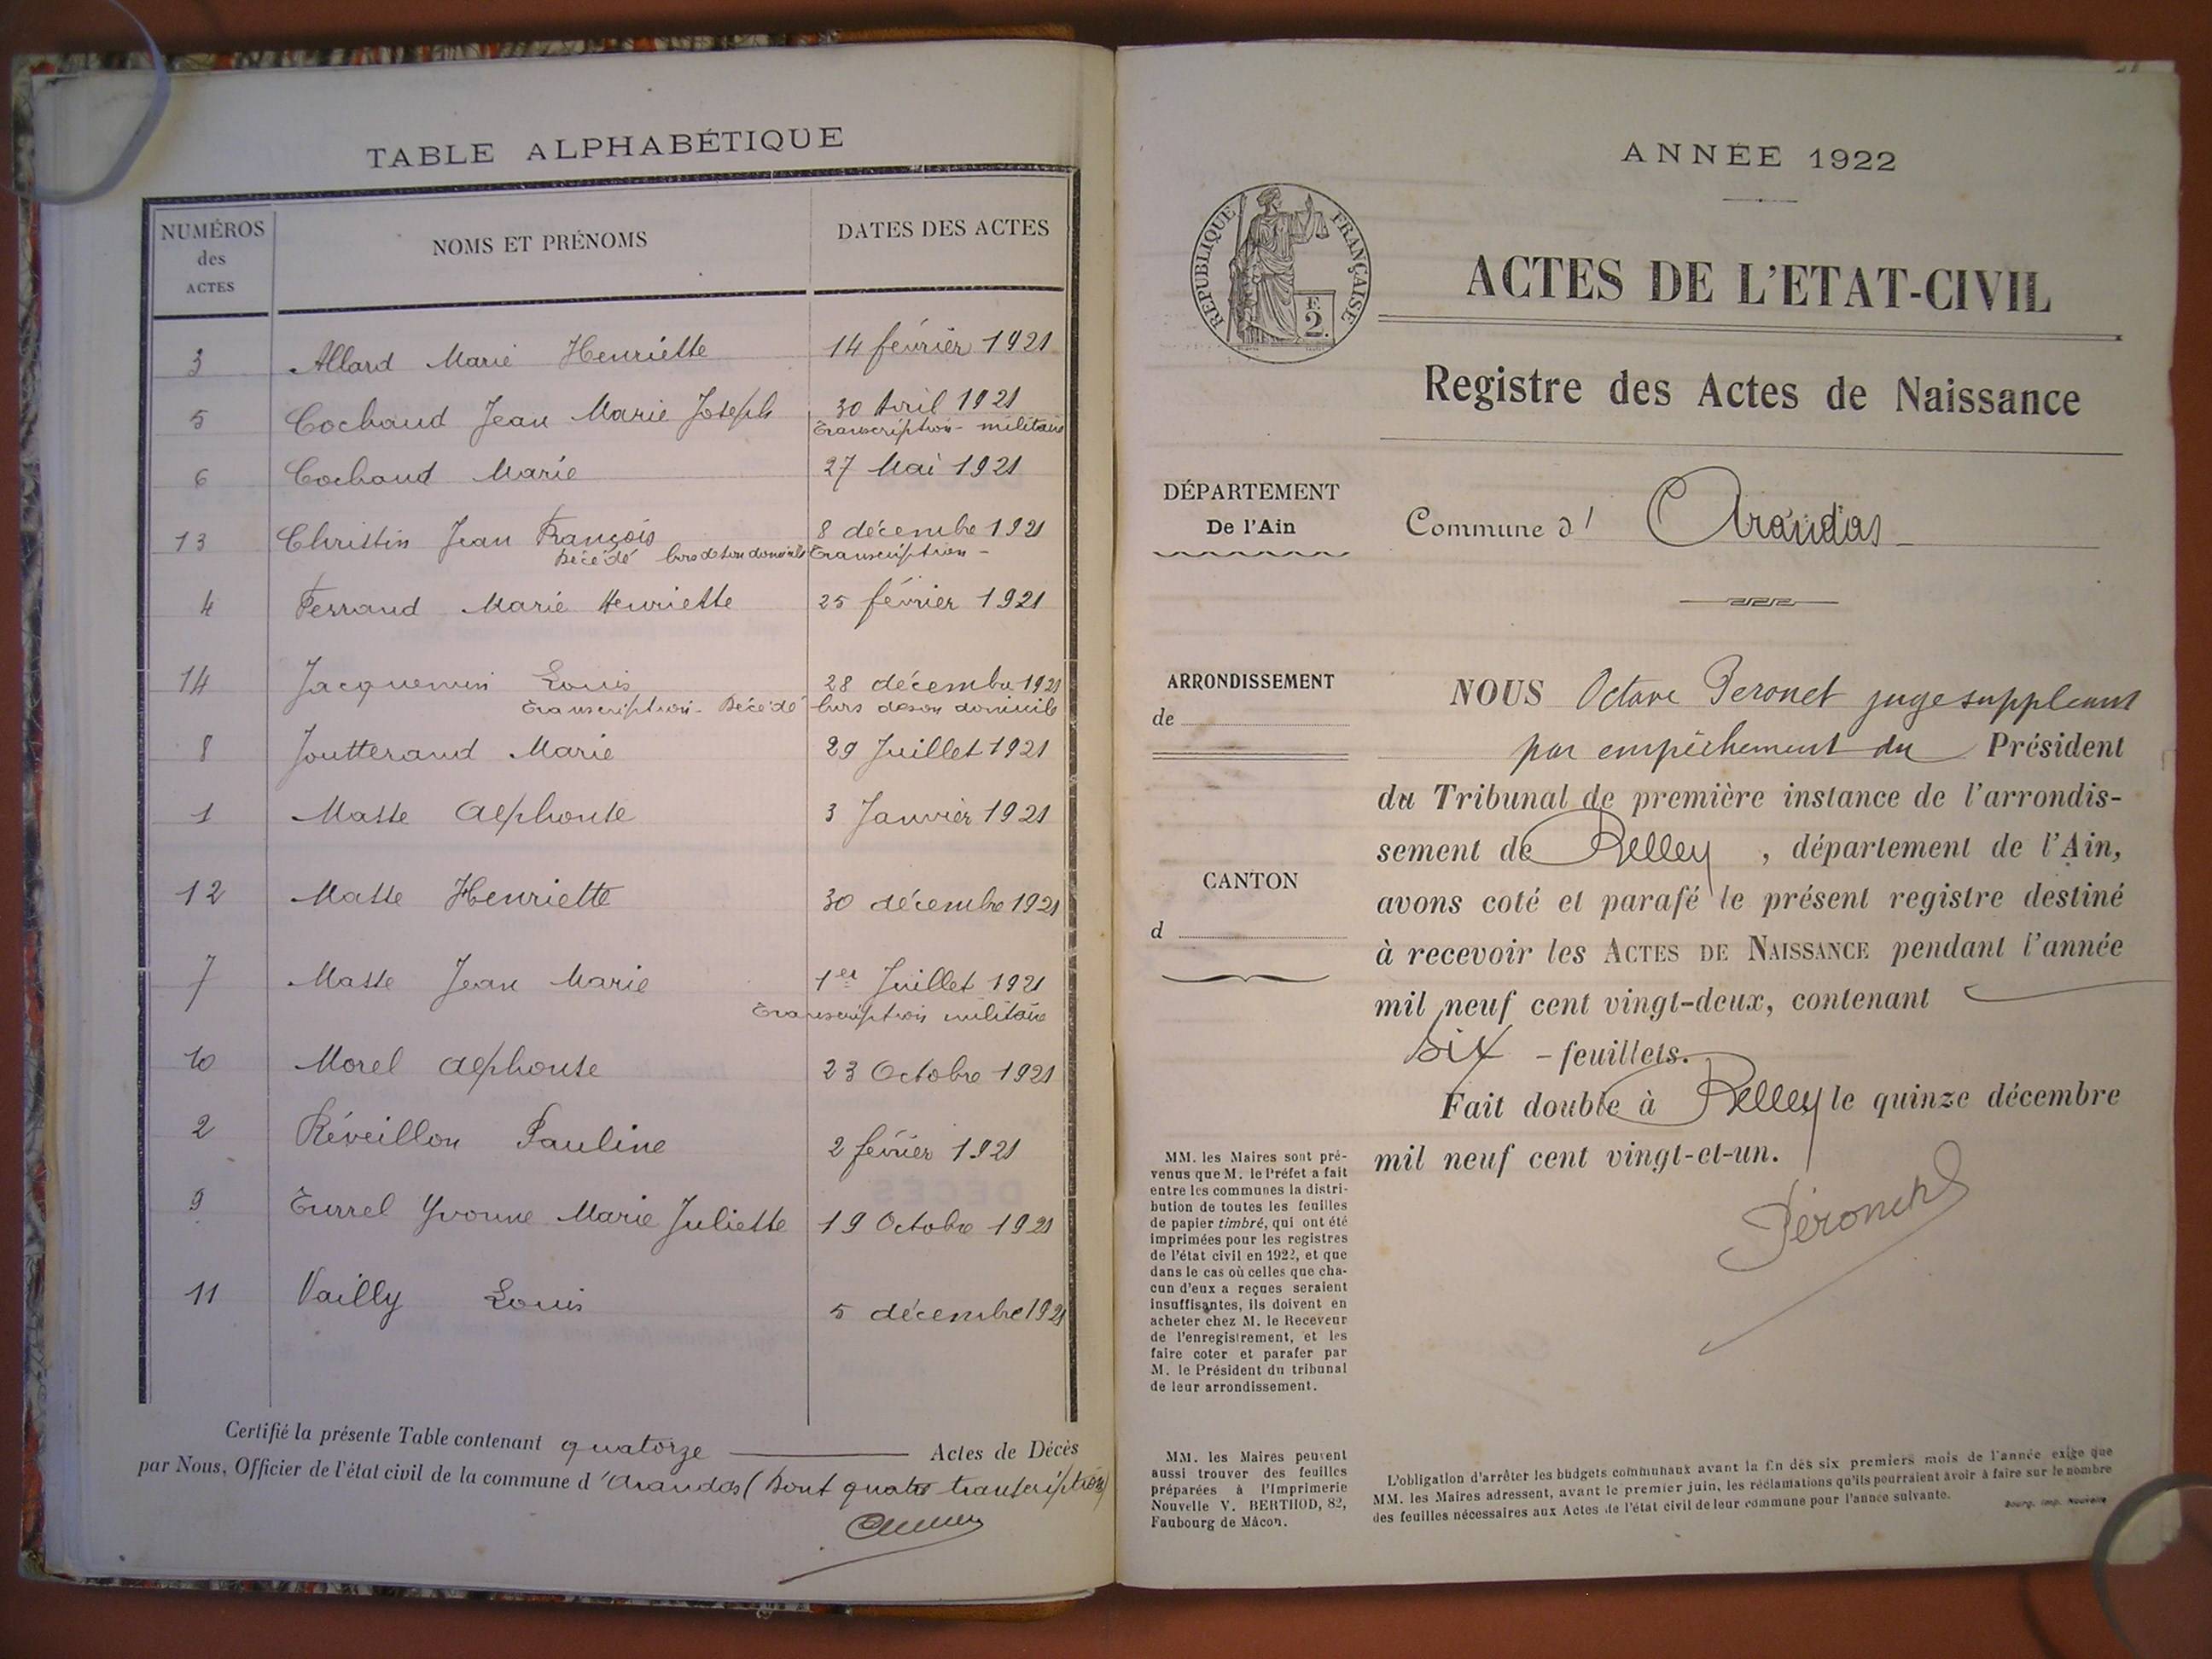 TABLE ALPHABÉTIQUE
NUMÉROS des ACTES NOMS ET PRÉNOMS DATES DES ACTES
3 Allard Marie Henriette 14 février 1921
5 Cochaud Jean Marie Joseph 30 Avril 1921
Transcription - militaire
6 Cochaud Marie 27 Mai 1921
13 Christin Jean François 8 décembre 1921
Décédé hors de son domicile Transcription -
4 Ferrand Marie Henriette 25 février 1921
14 Jacquemin Louis 28 décembre 1921
Transcription - Décédé hors de son domicile
8 Joutterand Marie 29 Juillet 1921
1 Masse Alphonse 3 Janvier 1921
12 Masse Henriette 30 décembre 1921
7 Masse Jean Marie 1er Juillet 1921
Transcription militaire
10 Morel Alphonse 23 Octobre 1921
2 Réveillon Pauline 2 février 1921
9 Turrel Yvonne Marie Juliette 19 Octobre 1921
11 Vailly Louis 5 décembre 1921
Certifié la présente Table contenant quatorze Actes de Décès
par Nous, Officier de l'état civil de la commune d'Arandas (Dont quatre transcriptions)
ANNÉE 1922
RÉPUBLIQUE FRANÇAISE
F.
2.
ACTES DE L'ETAT-CIVIL
Registre des Actes de Naissance
DÉPARTEMENT
De l'Ain
Commune d' Arandas
ARRONDISSEMENT
de
CANTON
d
NOUS Octave Peronet juge suppléant
par empêchement du Président
du Tribunal de première instance de l'arrondis-
sement de Belley , département de l'Ain,
avons coté et parafé le présent registre destiné
à recevoir les ACTES DE NAISSANCE pendant l'année
mil neuf cent vingt-deux, contenant
six - feuillets.
Fait double à Belley le quinze décembre
mil neuf cent vingt-et-un.
Péronet
MM. les Maires sont pré-
venus que M. le Préfet a fait
entre les communes la distri-
bution de toutes les feuilles
de papier timbré, qui ont été
imprimées pour les registres
de l'état civil en 1922, et que
dans le cas où celles que cha-
cun d'eux a reçues seraient
insuffisantes, ils doivent en
acheter chez M. le Receveur
de l'enregistrement, et les
faire coter et parafer par
M. le Président du tribunal
de leur arrondissement.
MM. les Maires peuvent
aussi trouver des feuilles
préparées à l'Imprimerie
Nouvelle V. BERTHOD, 82,
Faubourg de Mâcon.
L'obligation d'arrêter les budgets communaux avant la fin des six premiers mois de l'année exige que
MM. les Maires adressent, avant le premier juin, les réclamations qu'ils pourraient avoir à faire sur le nombre
des feuilles nécessaires aux Actes de l'état civil de leur commune pour l'année suivante.
Bourg, Imp. Nouvelle